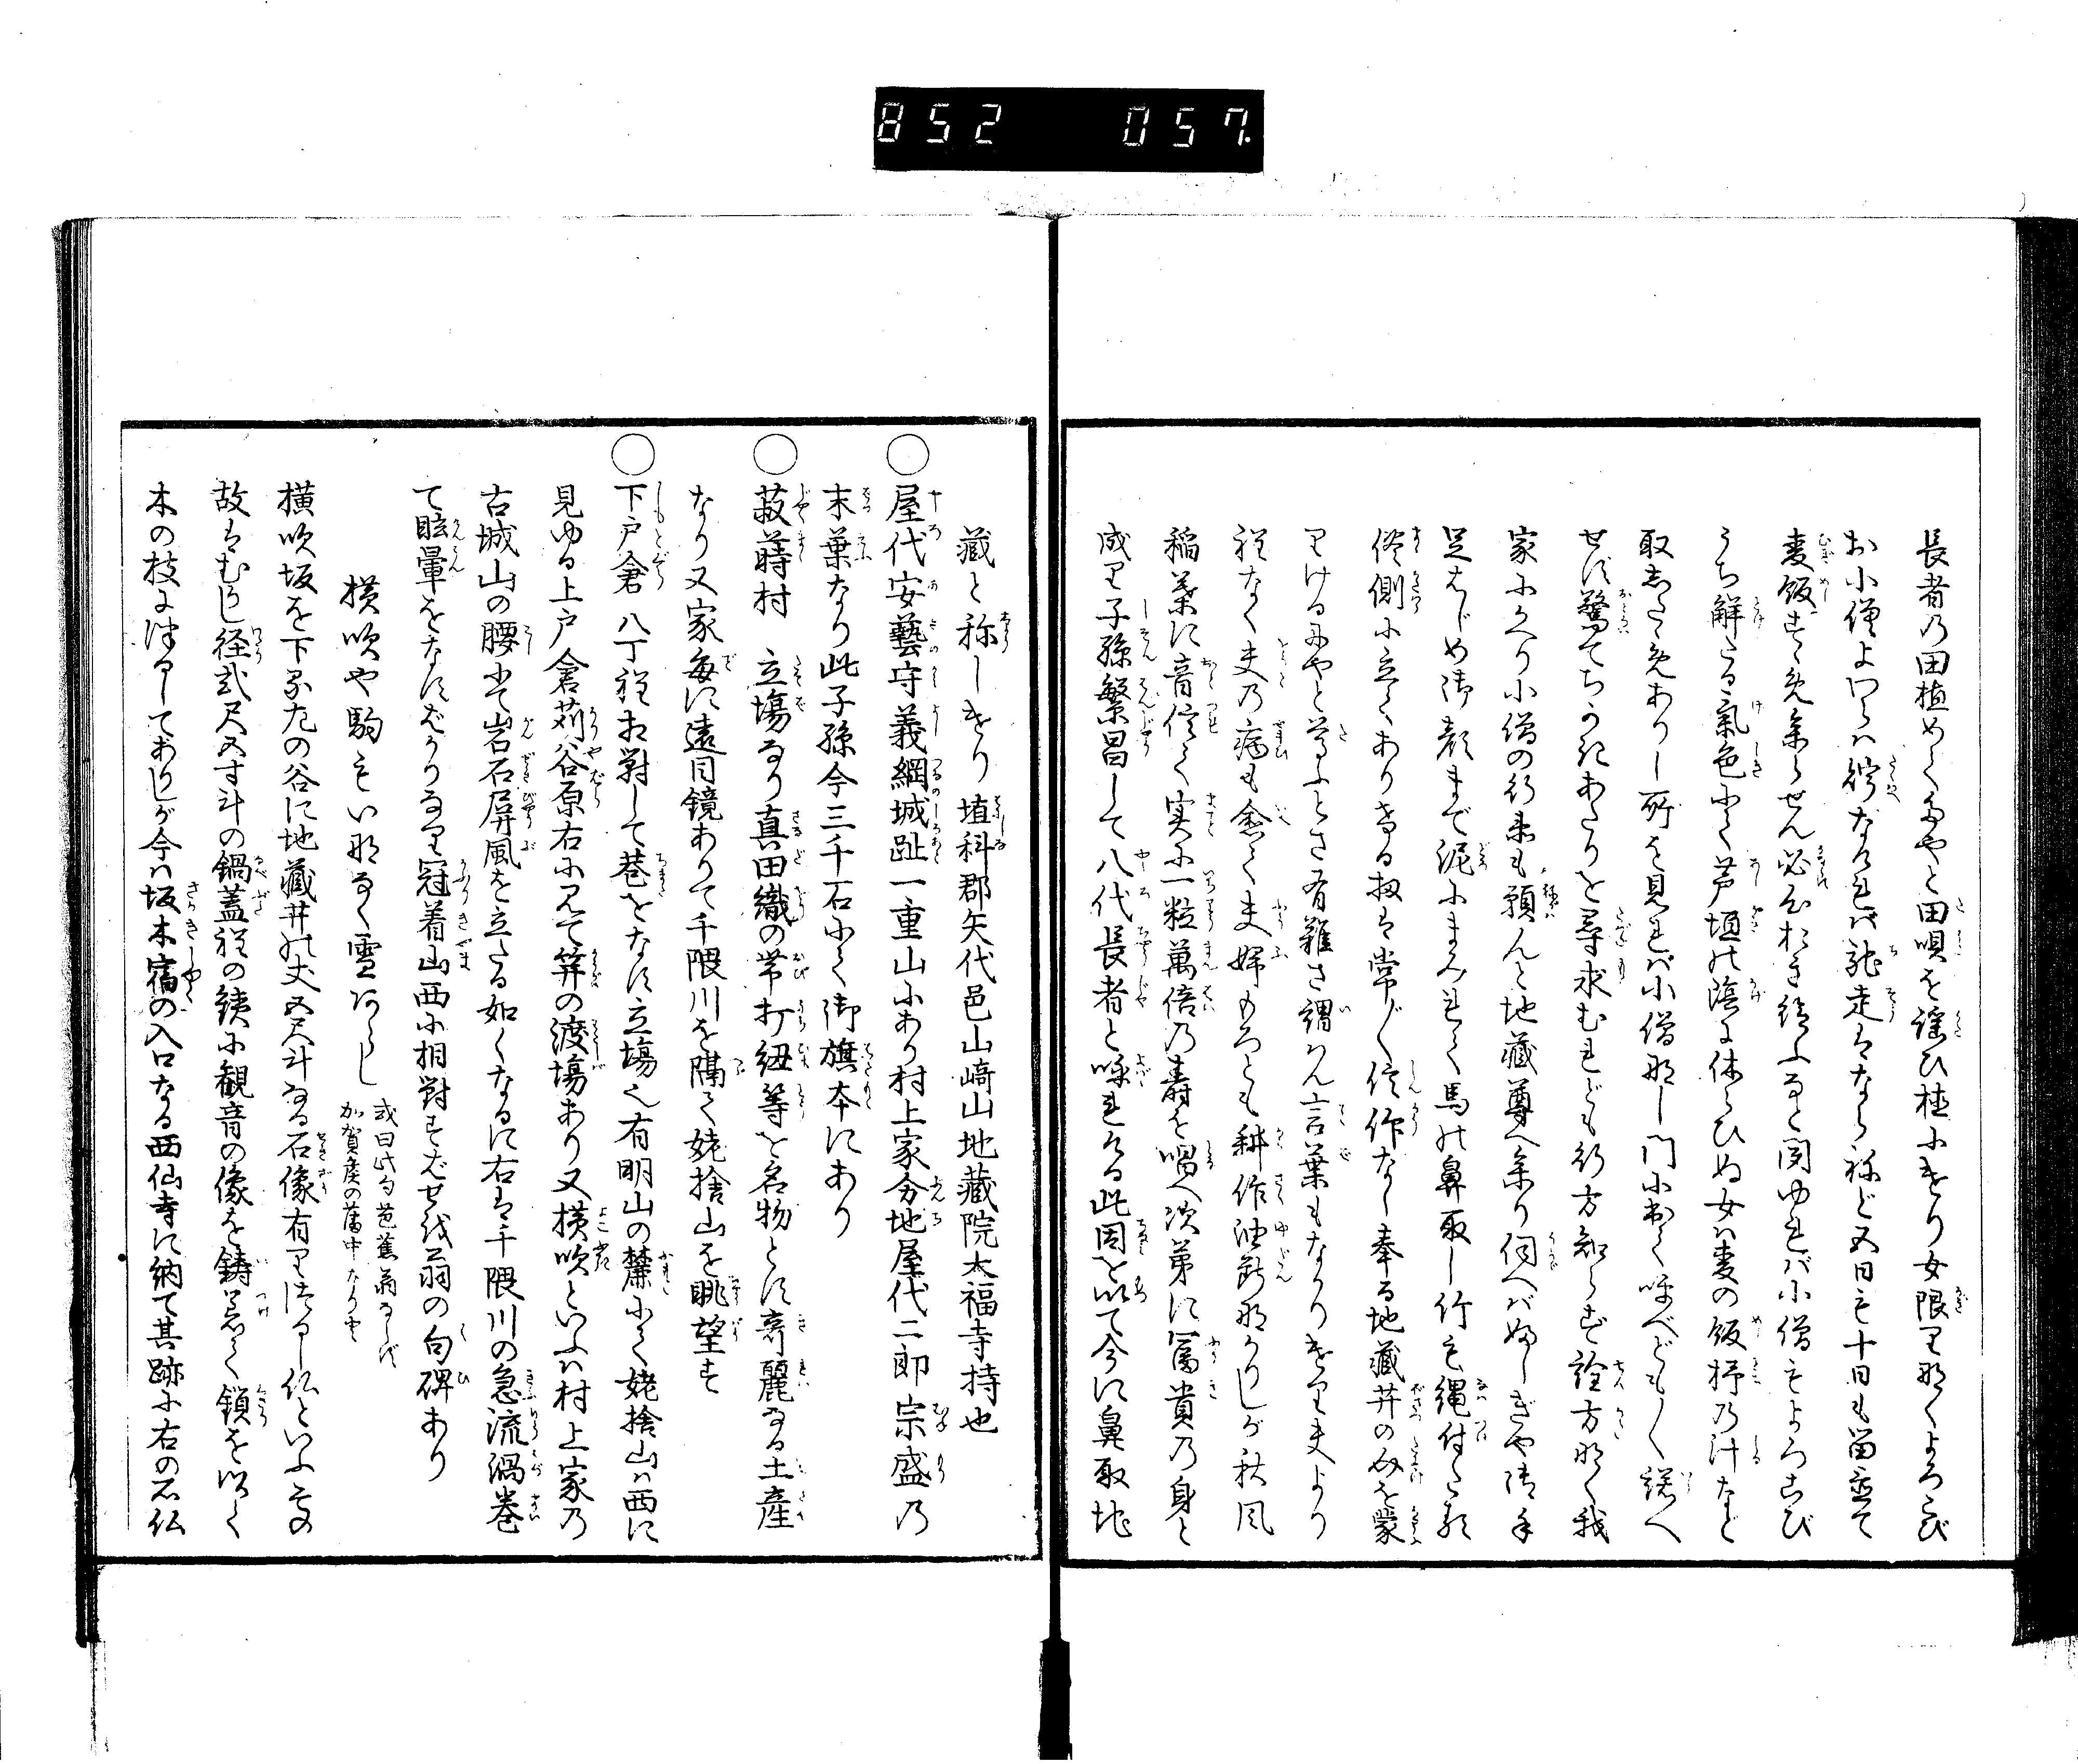 852 057
長者乃田植めく多やと田唄を謡ひ植小きり女限里那くよろこび
お小僧よつらハ稀なれバ馳走もならねど五日も十日も留置て
麦飯たく免参らせん必ずおき給ふなと聞ゆれバ小僧もよろこび
うち解たる氣色にて芦垣の陰に休らひぬ女ハ麦の飯抒乃汁など
取したゝめありし所を見れバ小僧那し門に出て呼べども〳〵答へ
せず驚てちかきあたりを尋求むれども行方知らず詮方那く我
家にかへり小僧の行末も頼んと地藏尊へ参り伺へバふしぎや御手
足はじめ御顔まで泥にまみれて馬の鼻取し竹も縄付たる
侭側に立てありける扨も常〴〵信仰なし奉る地藏井のみを蒙
りけるにやと尊ふとさ有難さ謂ん言葉もなかりきり夫より
程なく夫乃病も愈て夫婦もろとも耕作油断那かりしが秋風
稲葉に音信て実に一粒萬倍乃壽を唱へ次第に冨貴乃身と
成り子孫繁昌して八代長者と呼れける此因を以て今に鼻取地
藏と称しきり埴科郡矢代邑山﨑山地藏院太福寺持也
○屋代安藝守義綱城趾一重山にあり村上家分地屋代二郎宗盛乃
末葉なり此子孫今三千石にて御旗本にあり
○菽蒔村 立場なり真田織の帯打紐等を名物とす竒麗なる土産
なり又家毎に遠目鏡ありて千隈川を隔て姥捨山を眺望す
○下戸倉 八丁程相對して巷をなす立場也有明山の麓にて姥捨山ハ西に
見ゆる上戸倉苅谷原右に見て笄の渡場あり又横吹といふハ村上家乃
古城山の腰にて岩石屏風を立たる如くなるに右は千隈川の急流渦巻
て眩暈をなすばかりなり冠着山西に相對すばせを翁の句碑あり
横吹や駒もい那なく雪あらし
或曰此句芭蕉翁ならず
加賀産の蒲中なりと云
横吹坂を下る左の谷に地藏井の丈五尺斗なる石像有りつるし仏といふ其
故はむかし径弐尺五寸斗の鍋蓋程の鉄に観音の像を鋳着て鎖を以て
木の枝につるしてありしが今ハ坂木宿の入口なる西仙寺に納て其跡に右の石仏